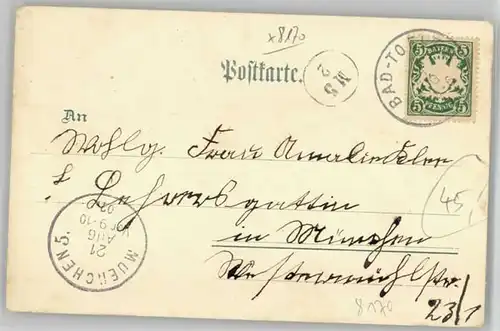 x8170
Postkarte.
M 8
2
BAD-TO
BAYERN
5 5
5 PFENNIG 5
An
Wohlg. Frau Amalie
Lehrersgattin
in München
Westermühlstr.
23/1
45,
MUENCHEN 5.
21
AUG
9-10